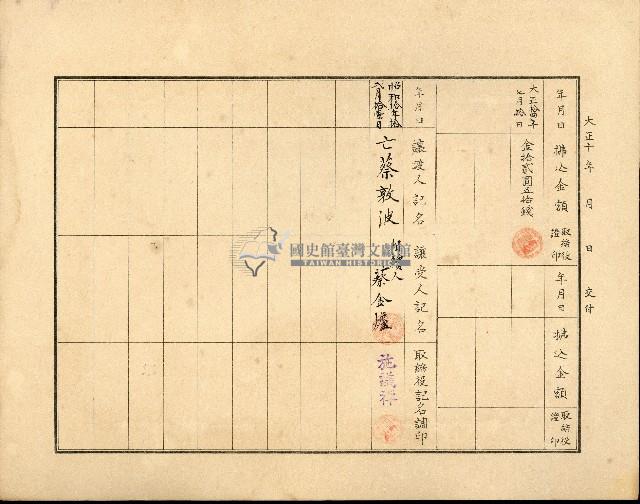 大正十年 月 日 交付
年月日 拂込金額 取締役證印
年月日 拂込金額 取締役證印
大正拾年
七月拾日
金拾貳圓五拾錢
年月日 讓渡人記名 讓受人記名 取締役記名調印
昭和拾年拾
月拾壹日
亡蔡敦波
相續人
蔡金
施議祥
國史館臺灣文獻館
TAIWAN HISTORICA